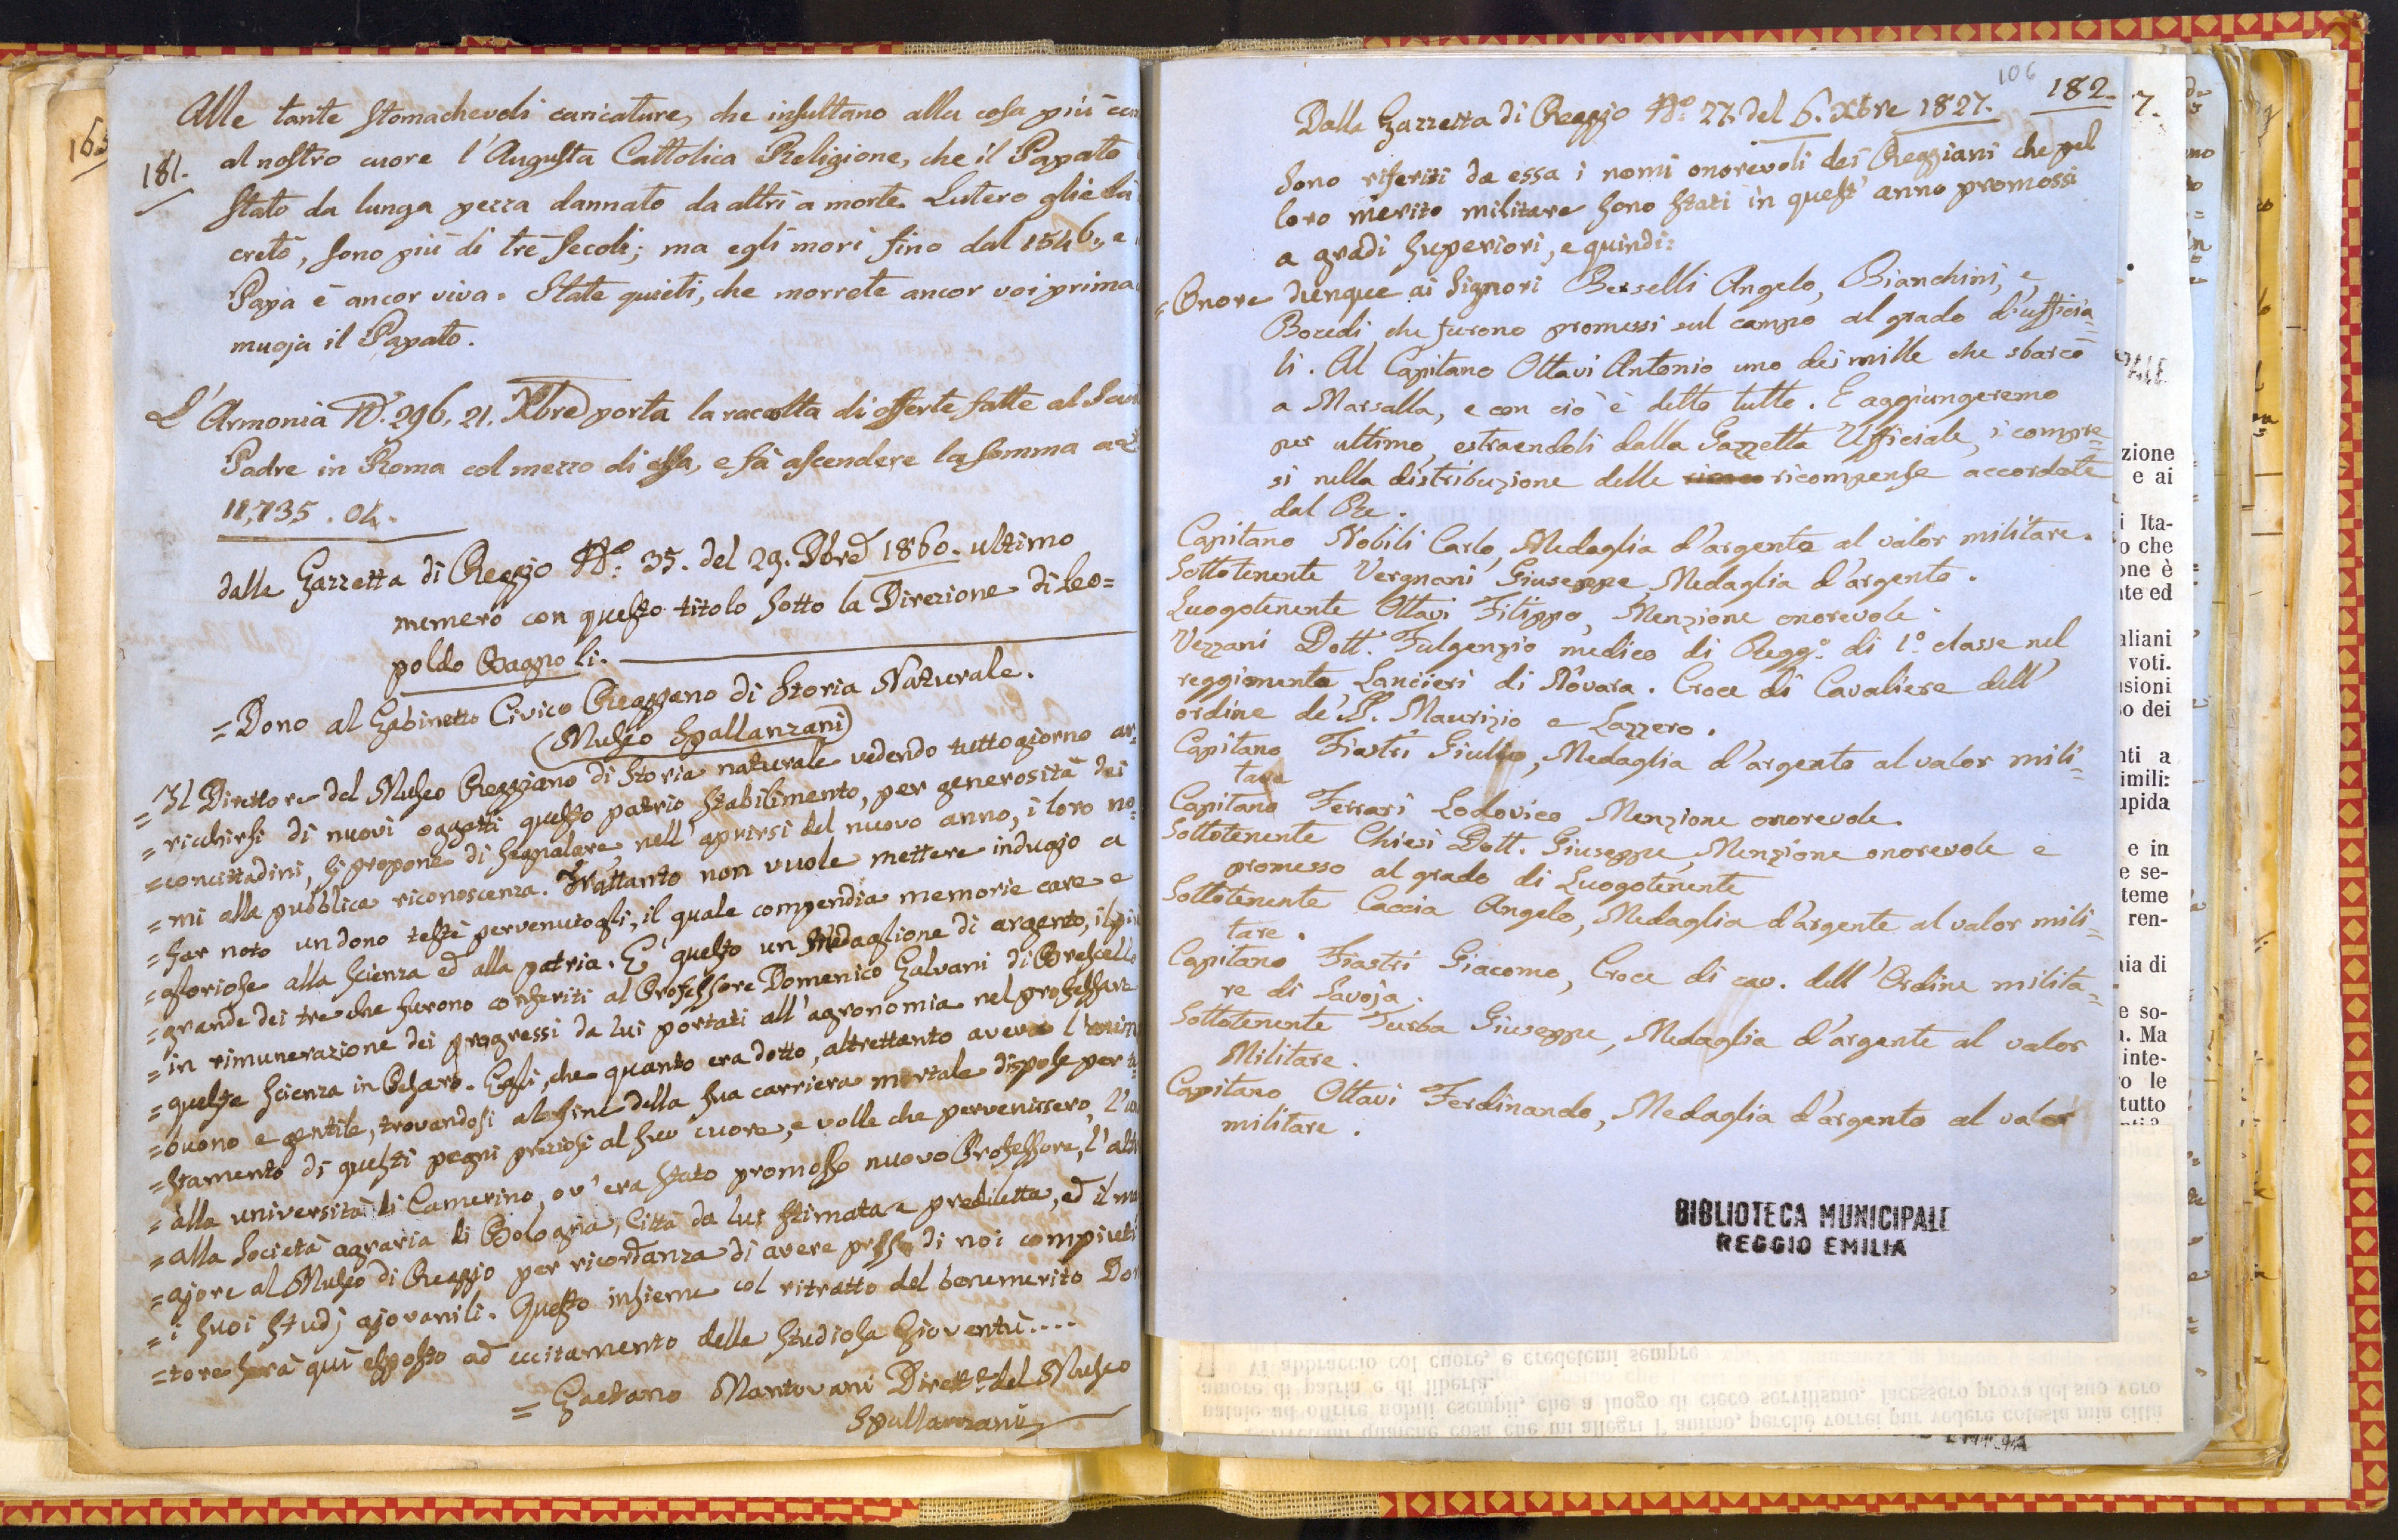 163
181.
Alle tante stomachevoli caricature, che insultano alla cosa più
al nostro cuore l'Augusta Cattolica Religione, che il Papato
stato da lunga pezza dannato da altri a morte. Lutero glie la
cretò, sono più di trè secoli; ma egli morì sino dal 1546., e
Papa è ancor viva. State quieti, che morrete ancor voi prima
muoja il Papato.
L'Armonia N. 296. 21. Xbre porta la raccolta di offerte fatte al
Padre in Roma col mezzo di essa, e fà ascendere la somma a
11,735.04.
dalla Gazzetta di Reggio No. 35. del 29. Xbre 1860. ultimo
numero con questo titolo sotto la Direzione di Leo=
poldo Bagnoli.
= Dono al Gabinetto Civico Reggiano di Storia Naturale.
(Museo Spallanzani)
= Il Direttore del Museo Reggiano di storia naturale vedendo tuttogiorno ar=
= ricchirsi di nuovi oggetti questo patrio stabilimento, per generosità dei
= concittadini, si propone di segnalare, nell'aprirsi del nuovo anno, i loro no=
= mi alla pubblica riconoscenza. Frattanto non vuole mettere indugio a
= far noto un dono testè pervenutogli, il quale compendia memorie care e
= gloriose alla scienza ed alla patria. E' questo un Medaglione di argento, il più
= grande dei tre che furono conferiti al Professore Domenico Galvani di Brescello
= in rimunerazione dei progressi da lui portati all'agronomia nel professare
= questa scienza in Pesaro. Egli, che quanto era dotto, altrettanto aveva l'anim
= buono e gentile, trovandosi al fine della sua carriera mortale dispose per te
= stamento di questi pegni preziosi al suo cuore, e volle che pervenissero, l'
= alla università di Camerino, ov'era stato promosso nuovo Professore, l'alt
= alla Società agraria di Bologna, Città da lui stimata e prediletta, ed il m
= ajore al Museo di Reggio per ricordanza di avere presso di noi compiuti
= i suoi studj giovanili. Questo insieme col ritratto del benemerito Do
= tore sarà quì esposto ad eccitamento della studiosa Gioventù....
= Gaetano Mantovani Dirett.e del Museo
Spallanzani
106
182.
Dalla Gazzetta di Reggio No. 27. del 6. Xbre 1827.
Sono riferiti da essa i nomi onorevoli dei Reggiani che pel
loro merito militare sono stati in quest'anno promossi
a gradi superiori, e quindi:
= Onore dunque ai Signori Beselli Angelo, Bianchini, e
Bocedi, che furono promessi sul campo al grado d'ufficia=
li. Al Capitano Ottavi Antonio uno dei mille che sbarcò
a Marsalla, e con ciò è detto tutto. E aggiungeremo
per ultimo, estraendoli dalla Gazzetta Ufficiale, i compre=
si nella distribuzione delle ricompense accordate
dal Re.
Capitano Nobili Carlo, Medaglia d'argento al valor militare.
Sottotenente Vergnani Giuseppe, Medaglia d'argento.
Luogotenente Ottavi Filippo, Menzione onorevole.
Vezzani Dott. Fulgenzio medico di Regg.o di 1.o classe nel
reggimento Lancieri di Novara. Croce di Cavaliere dell'
ordine de' S. Maurizio e Lazzero.
Capitano Fiastri Giulio, Medaglia d'argento al valor mili=
tare
Capitano Ferrari Lodovico Menzione onorevole.
Sottotenente Chiesi Dott. Giuseppe, Menzione onorevole e
promesso al grado di Luogotenente
Sottotenente Caccia Angelo, Medaglia d'argente al valor mili=
tare.
Capitano Fiastri Giacomo, Croce di cav. dell'Ordine milita=
re di Savoja.
Sottotenente Turba Giuseppe, Medaglia d'argente al valor
Militare.
Capitano Ottavi Ferdinando, Medaglia d'argento al valor
militare.
BIBLIOTECA MUNICIPALE
REGGIO EMILIA
7.
zione
e ai
i Ita-
o che
one è
te ed
aliani
voti.
sioni
so dei
ti a
imili:
upida
e in
e se-
teme
ren-
ia di
e so-
. Ma
inte-
o le
tutto
Vi abbraccio col cuore, e credetemi sempre
amore di patria e di libertà.
natale ad offrire nobili esempii, che a luogo di cieco servilismo, facessero prova del suo vero
qualche cosa che mi allegri l'animo, perchè vorrei pur vedere cotesta mia città